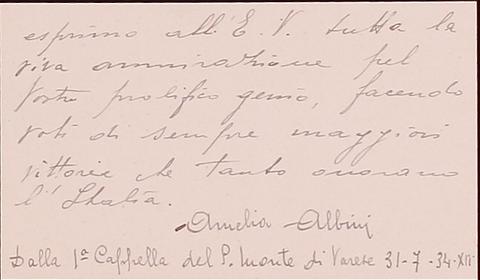 esprimo all'E. V. tutta la
viva ammirazione pel
Vostro prolifico genio, facendo
voti di sempre maggiori
vittorie che tanto onorano
l'Italia.
Amelia Albini
Dalla 1ª Cappella del S. Monte di Varese 31-7-34-XII